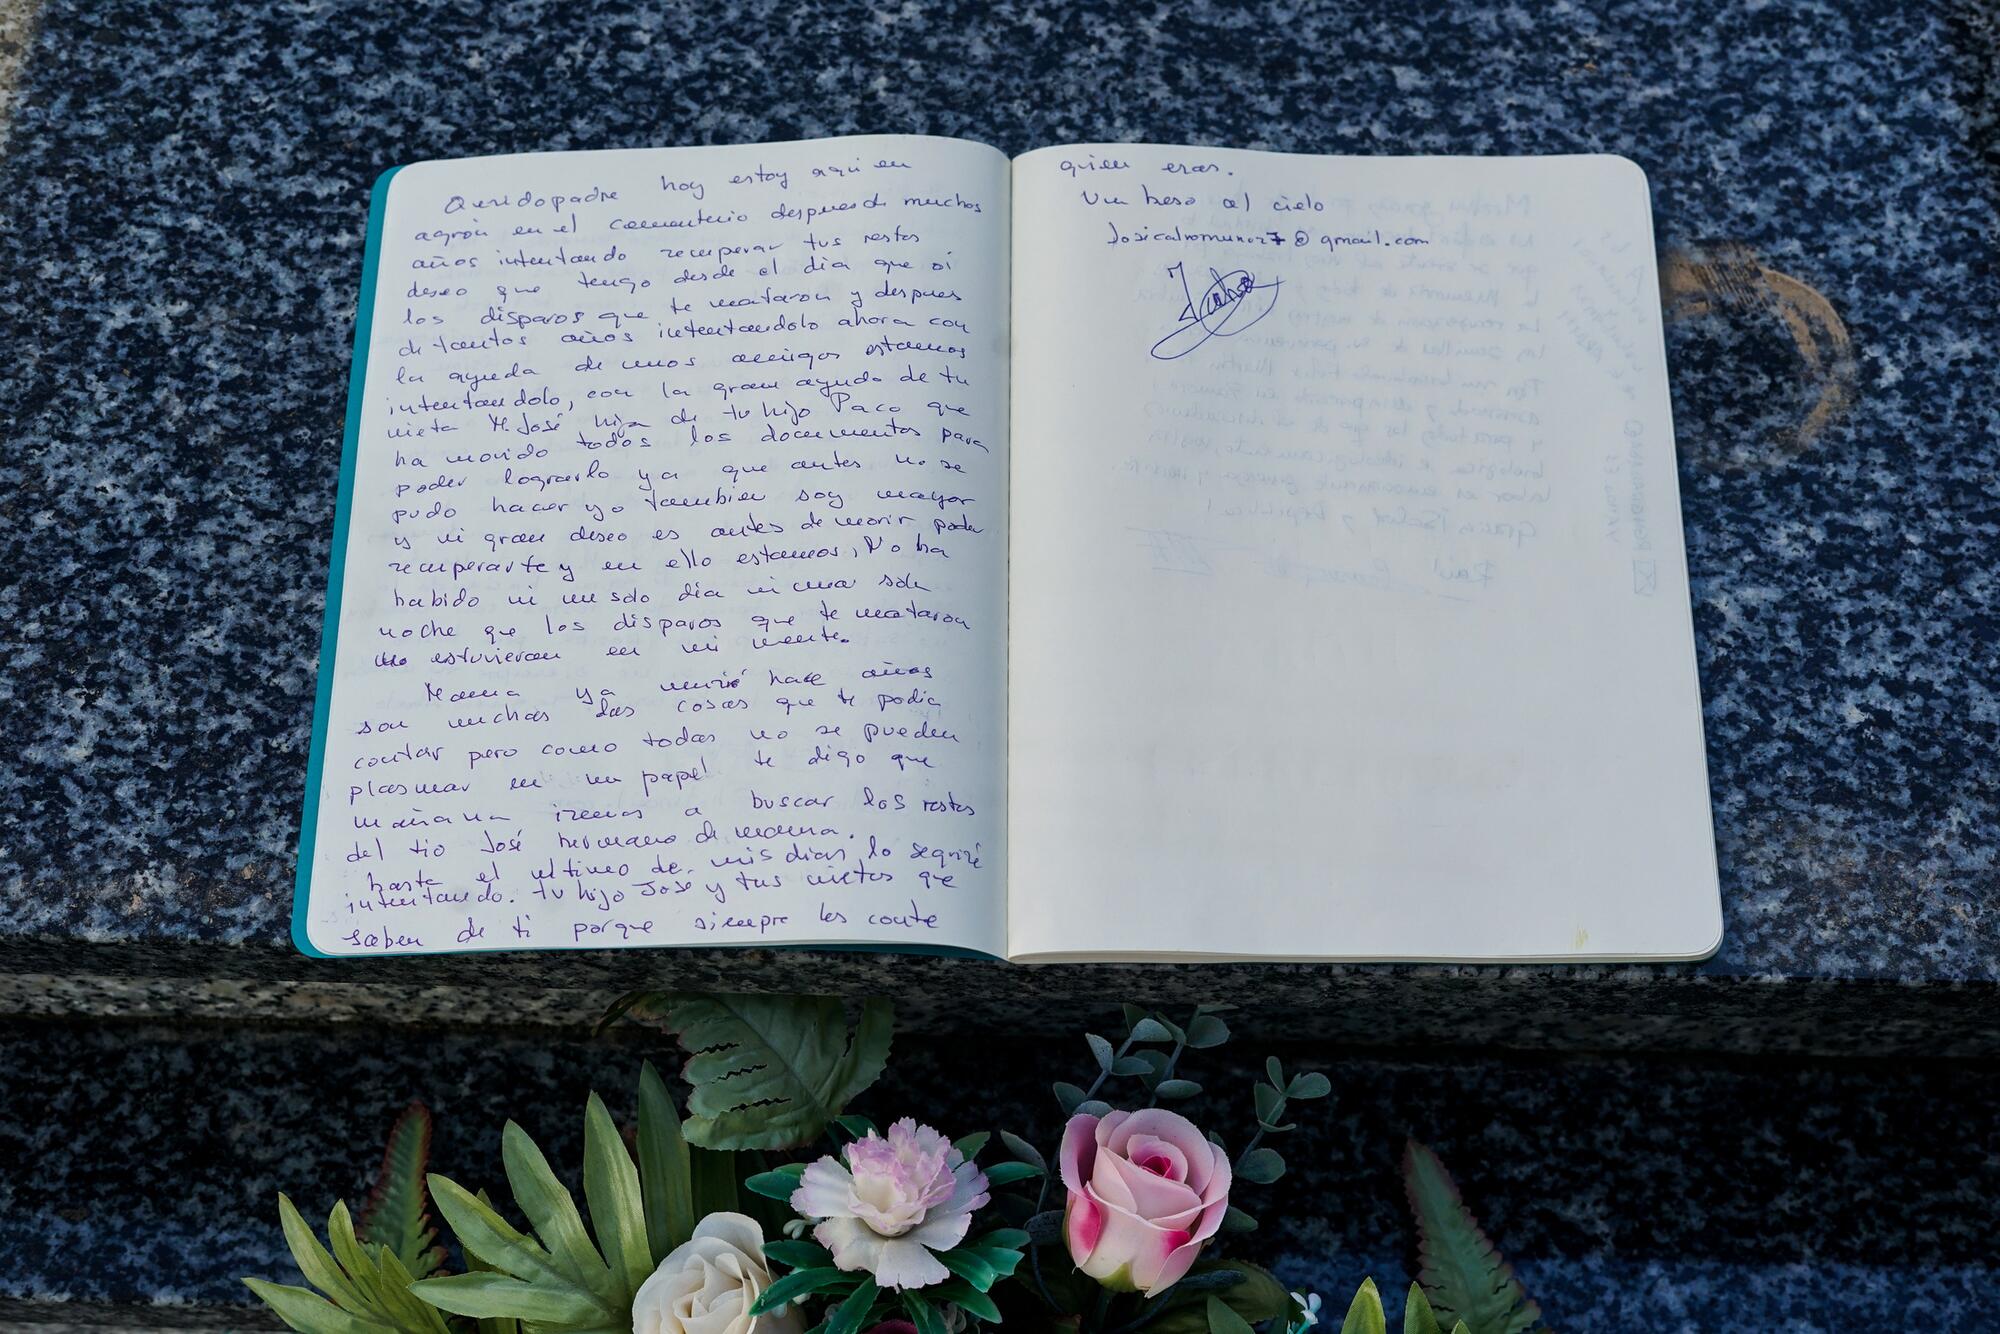 Querido padre hoy estoy aqui en
agrón en el cementerio despues de muchos
años intentando recuperar tus restos
deseo que tengo desde el dia que oi
los disparos que te mataron y despues
de tantos años intentandolo ahora con
la ayuda de unos amigos estamos
intentandolo, con la gran ayuda de tu
nieta Mº José hija de tu hijo Paco que
ha movido todos los documentos para
poder lograrlo ya que antes no se
pudo hacer yo tambien soy mayor
y mi gran deseo es antes de morir poder
recuperarte y en ello estamos, No ha
habido ni un solo dia ni una sola
noche que los disparos que te mataron
no estuvieran en mi mente.
Mama ya murió hace años
son muchas las cosas que te podia
contar pero como todas no se pueden
plasmar en un papel te digo que
mañana iremos a buscar los restos
del tio José hermano de mama.
hasta el ultimo de mis dias lo seguiré
intentando. tu hijo José y tus nietos que
saben de ti porque siempre les conte
quien eras.
Un beso al cielo
Josicalvomunoz7@gmail.com